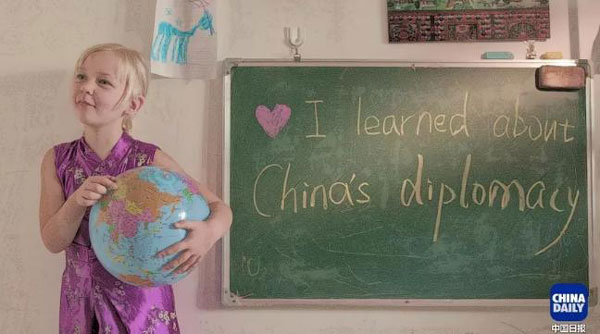 I learned about
China's diplomacy
CHINA
DAILY
中国日报